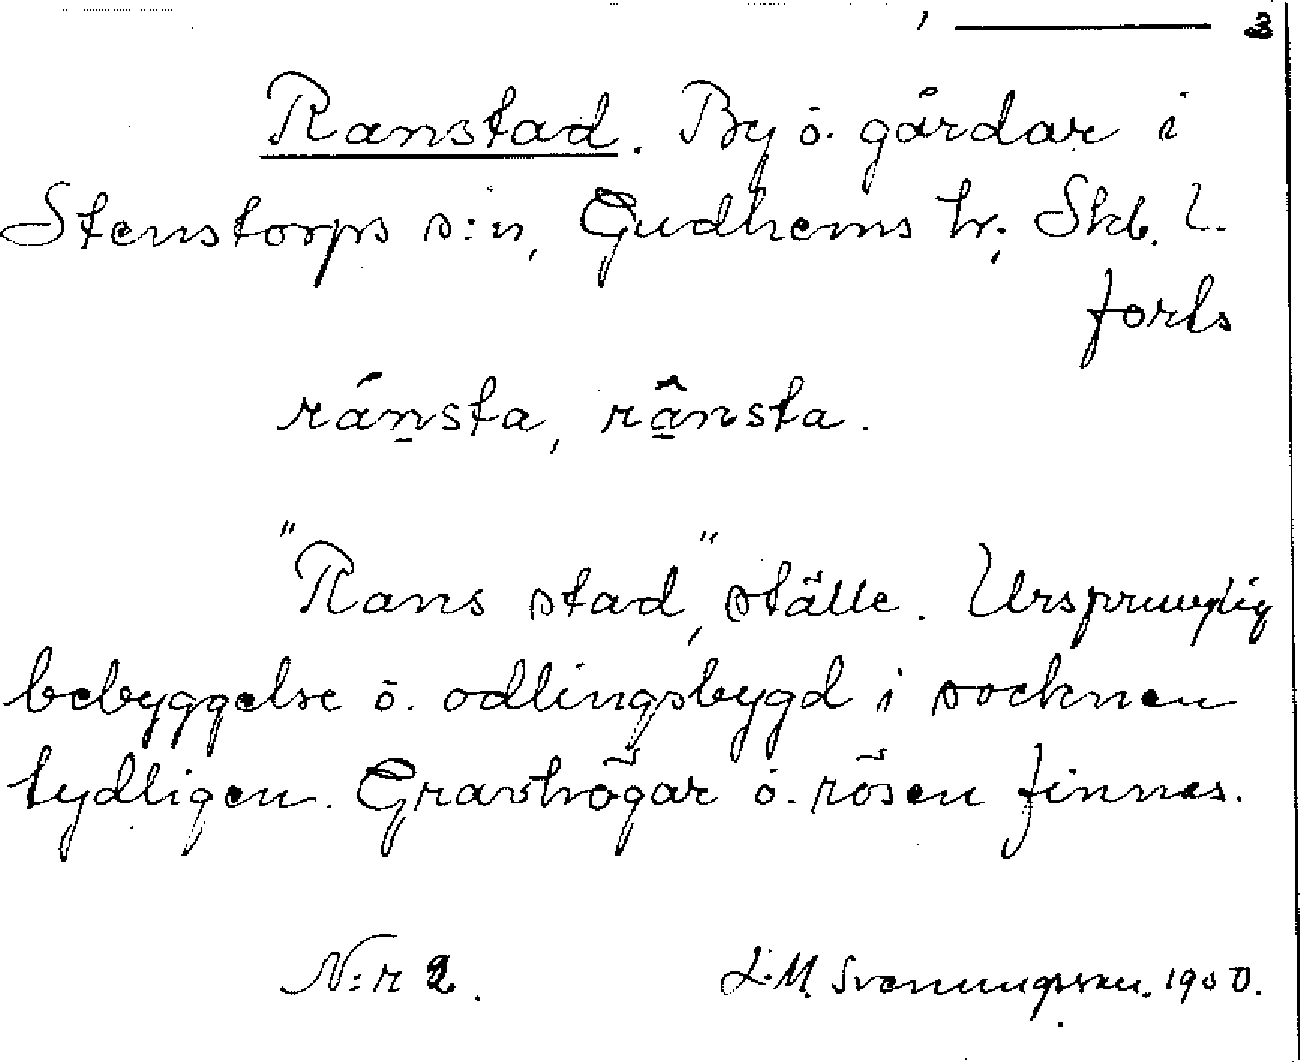 Ranstad. By o. gårdar i
Stenstorps s:n, Gudhems hr, Skb. l.
forts
ránsta, rânsta.
"Rans stad", ställe. Ursprunglig
bebyggelse o. odlingsbygd i socknen
tydligen. Gravhögar o. rösen finnes.
N:r 2. L.M. Svenungsson. 1900.